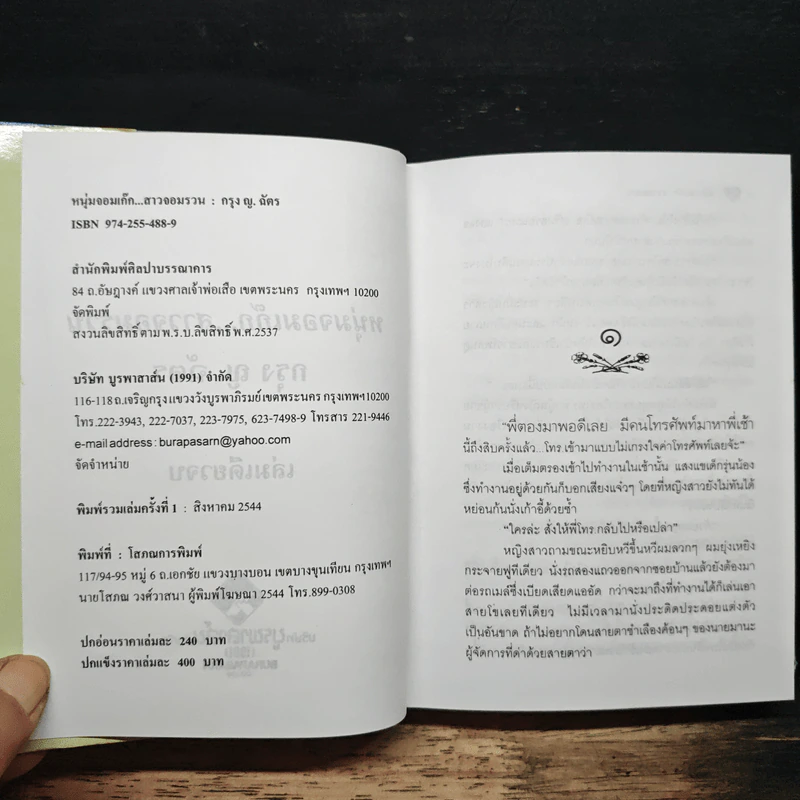 หนุ่มจอมเก๊ก...สาวจอมรวน : กรุง ญ. ฉัตร
ISBN 974-255-488-9
สำนักพิมพ์ศิลปาบรรณาคาร
84 ถ.อัษฎางค์ แขวงศาลเจ้าพ่อเสือ เขตพระนคร กรุงเทพฯ 10200
จัดพิมพ์
สงวนลิขสิทธิ์ ตาม พ.ร.บ.ลิขสิทธิ์ พ.ศ.2537
บริษัท บูรพาสาส์น (1991) จำกัด
116-118 ถ.เจริญกรุง แขวงวังบูรพาภิรมย์ เขตพระนคร กรุงเทพฯ 10200
โทร.222-3943, 222-7037, 223-7975, 623-7498-9 โทรสาร 221-9446
e-mail address : burapasarn@yahoo.com
จัดจำหน่าย
พิมพ์รวมเล่มครั้งที่ 1 : สิงหาคม 2544
พิมพ์ที่ : โสภณการพิมพ์
117/94-95 หมู่ 6 ถ.เอกชัย แขวงบางบอน เขตบางขุนเทียน กรุงเทพฯ
นายโสภณ วงศ์วาสนา ผู้พิมพ์โฆษณา 2544 โทร.899-0308
ปกอ่อนราคาเล่มละ 240 บาท
ปกแข็งราคาเล่มละ 400 บาท
๑
"พี่ตองมาพอดีเลย มีคนโทรศัพท์มาหาพี่เช้า
นี้ถึงสิบครั้งแล้ว...โทร.เข้ามาแบบไม่เกรงใจค่าโทรศัพท์เลยจ้ะ"
เมื่อเต็มตรองเข้าไปทำงานในเช้านั้น แสงแขเด็กรุ่นน้อง
ซึ่งทำงานอยู่ด้วยกันก็บอกเสียงแจ๋วๆ โดยที่หญิงสาวยังไม่ทันได้
หย่อนก้นนั่งเก้าอี้ด้วยซ้ำ
"ใครล่ะ สั่งให้พี่โทร.กลับไปหรือเปล่า"
หญิงสาวถามขณะหยิบหวีขึ้นหวีผมลวกๆ ผมยุ่งเหยิง
กระจายฟูทีเดียว นั่งรถสองแถวออกจากซอยบ้านแล้วยังต้องมา
ต่อรถเมล์ซึ่งเบียดเสียดแออัด กว่าจะมาถึงที่ทำงานได้ก็เล่นเอา
สายโขเลยทีเดียว ไม่มีเวลามานั่งประดิดประดอยแต่งตัว
เป็นอันขาด ถ้าไม่อยากโดนสายตาชำเลืองค้อนๆ ของนายมานะ
ผู้จัดการที่ด่าด้วยสายตาว่า